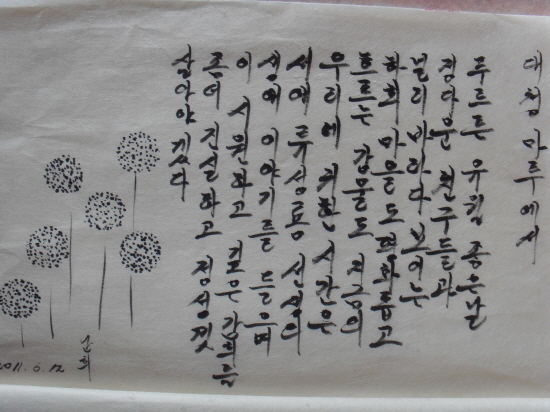 대청마루에서
푸르른 유월 좋은날
정다운 친구들과
널리 바라다 보이는
하회 마을도 평화롭고
흐르는 강물도 지금의
우리에 귀한 시간은
서애 류성룡 선생의
생에 이야기를 들으며
이 시원하고 깊은 감회를
좀더 진실하고 정성껏
살아야 겠다
2011. 6. 12
순희